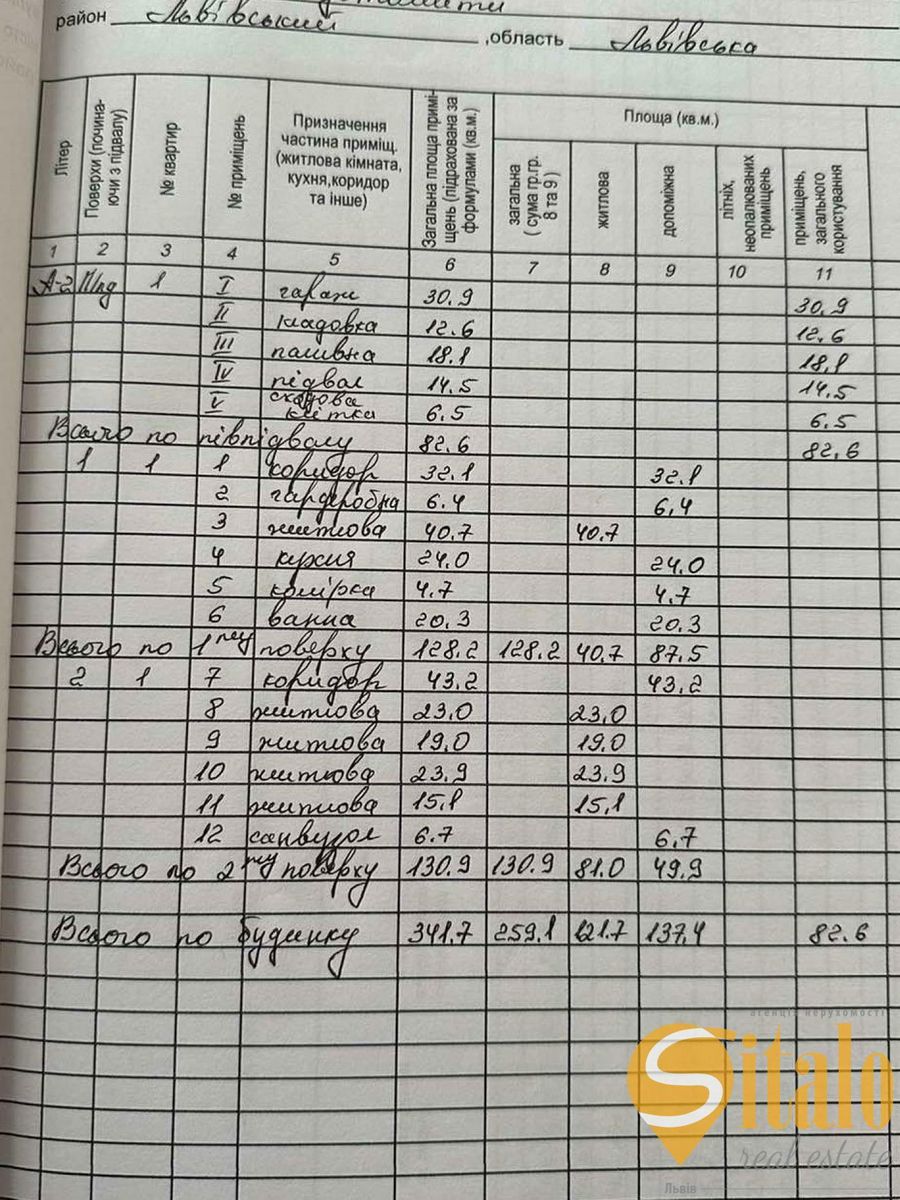 район Львівський ,область Львівська
Літер Поверхи (почина-ючи з підвалу) № квартир № приміщень Призначення частина приміщ. (житлова кімната, кухня,коридор та інше) Загальна площа примі-щень (підрахована за формулами (кв.м.) Площа (кв.м.)
загальна ( сума гр.гр. 8 та 9 ) житлова допоміжна літніх, неопалюваних приміщень приміщень, загального користування
1 2 3 4 5 6 7 8 9 10 11
А-2 П/пд 1 I гараж 30.9 30.9
II кладовка 12.6 12.6
III паливна 18.1 18.1
IV підвал 14.5 14.5
V сходова клітка 6.5 6.5
Всього по півпідвалу 82.6 82.6
1 1 1 коридор 32.1 32.1
2 гардеробна 6.4 6.4
3 житлова 40.7 40.7
4 кухня 24.0 24.0
5 комірка 4.7 4.7
6 ванна 20.3 20.3
Всього по 1му поверху 128.2 128.2 40.7 87.5
2 1 7 коридор 43.2 43.2
8 житлова 23.0 23.0
9 житлова 19.0 19.0
10 житлова 23.9 23.9
11 житлова 15.1 15.1
12 санвузол 6.7 6.7
Всього по 2му поверху 130.9 130.9 81.0 49.9
Всього по будинку 341.7 259.1 121.7 137.4 82.6
агенція нерухомості
Sitalo
real estate
Львів